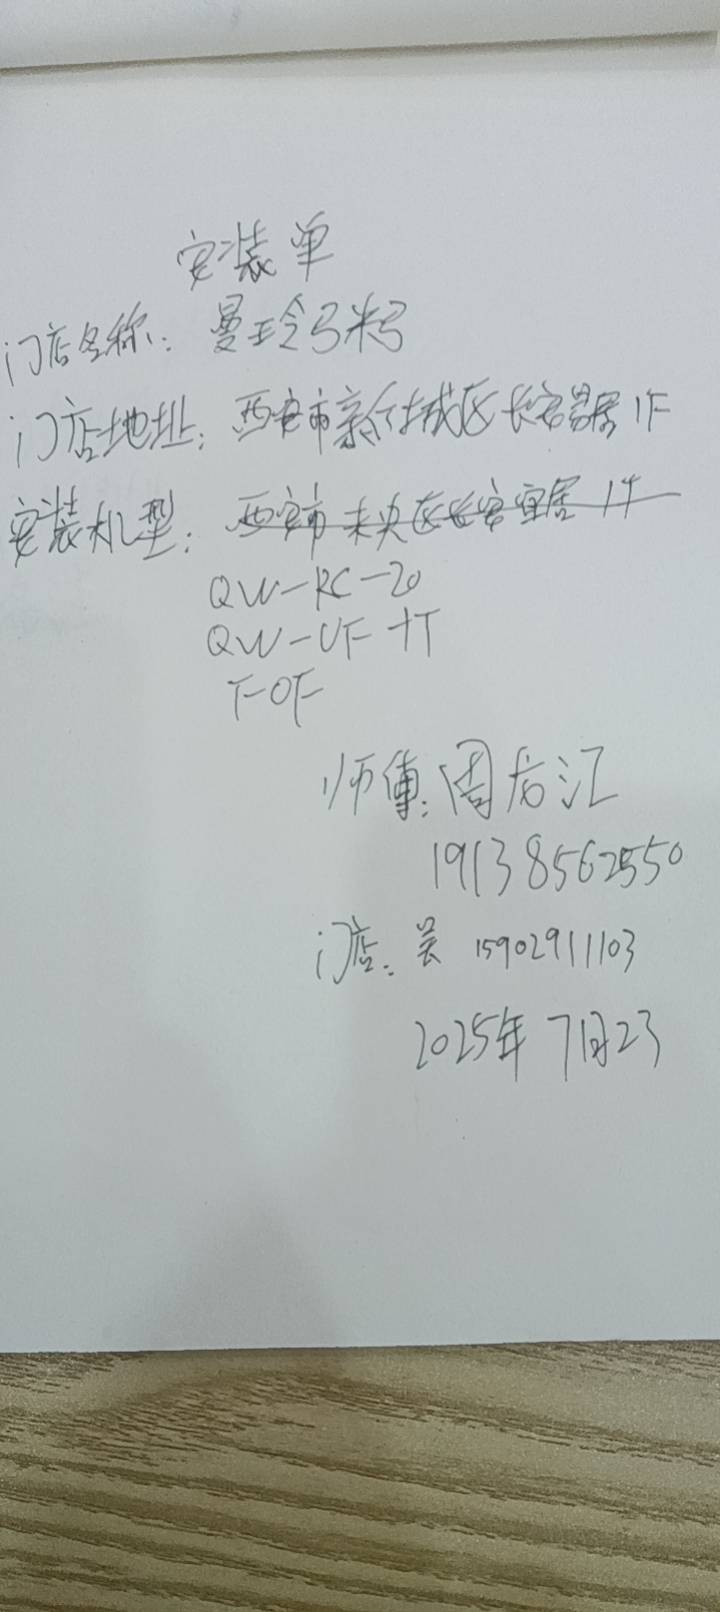 安装单
门店名称：曼玲粥
门店地址：西安市新城区长客宜居1F
安装机型：西安市未央区长客宜居1F
QW-RC-20
QW-UF+T
T-OF
师傅：周 汇
19138562550
门店： 15902911103
2025年7月23